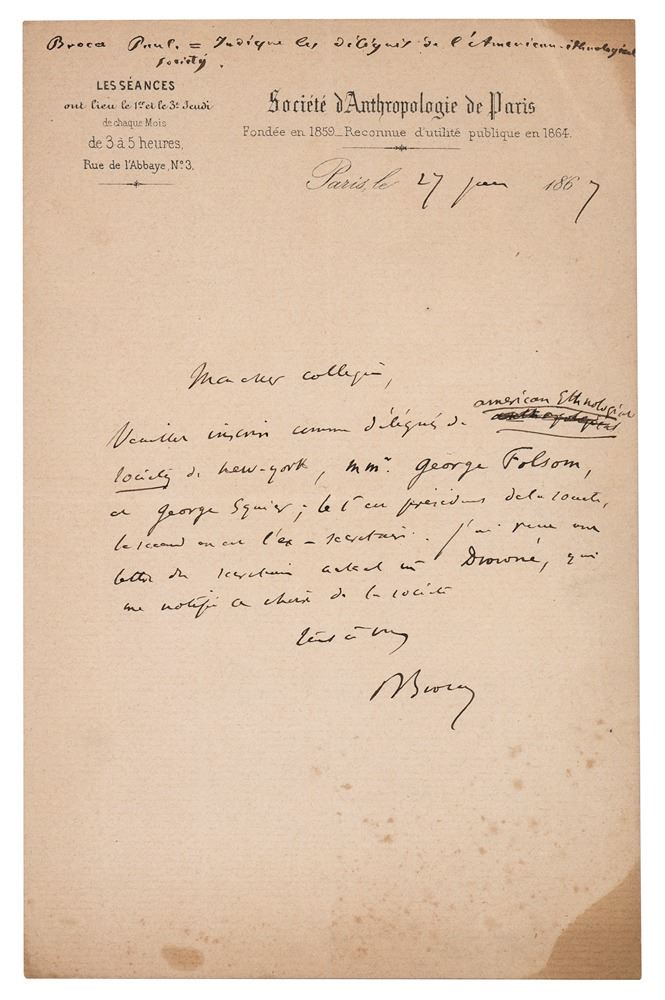 Broca Paul. = Indique les délégués de l'American-ethnological
society.
LES SÉANCES
ont lieu le 1er et le 3e Jeudi
de chaque Mois
de 3 à 5 heures,
Rue de l'Abbaye, No 3.
Société d'Anthropologie de Paris
Fondée en 1859_Reconnue d'utilité publique en 1864.
Paris, le 27 juin 1867
Mon cher collègue,
Veuillez inscrire comme délégués de american Ethnological
society de new-york, mmrs George Folsom,
et George Squier; le 1er est président de la société,
le second en est l'ex-secrétaire. J'ai reçu une
lettre du secrétaire actuel mr Drowne, qui
me notifie ce choix de la société
Tout à vous
P Broca